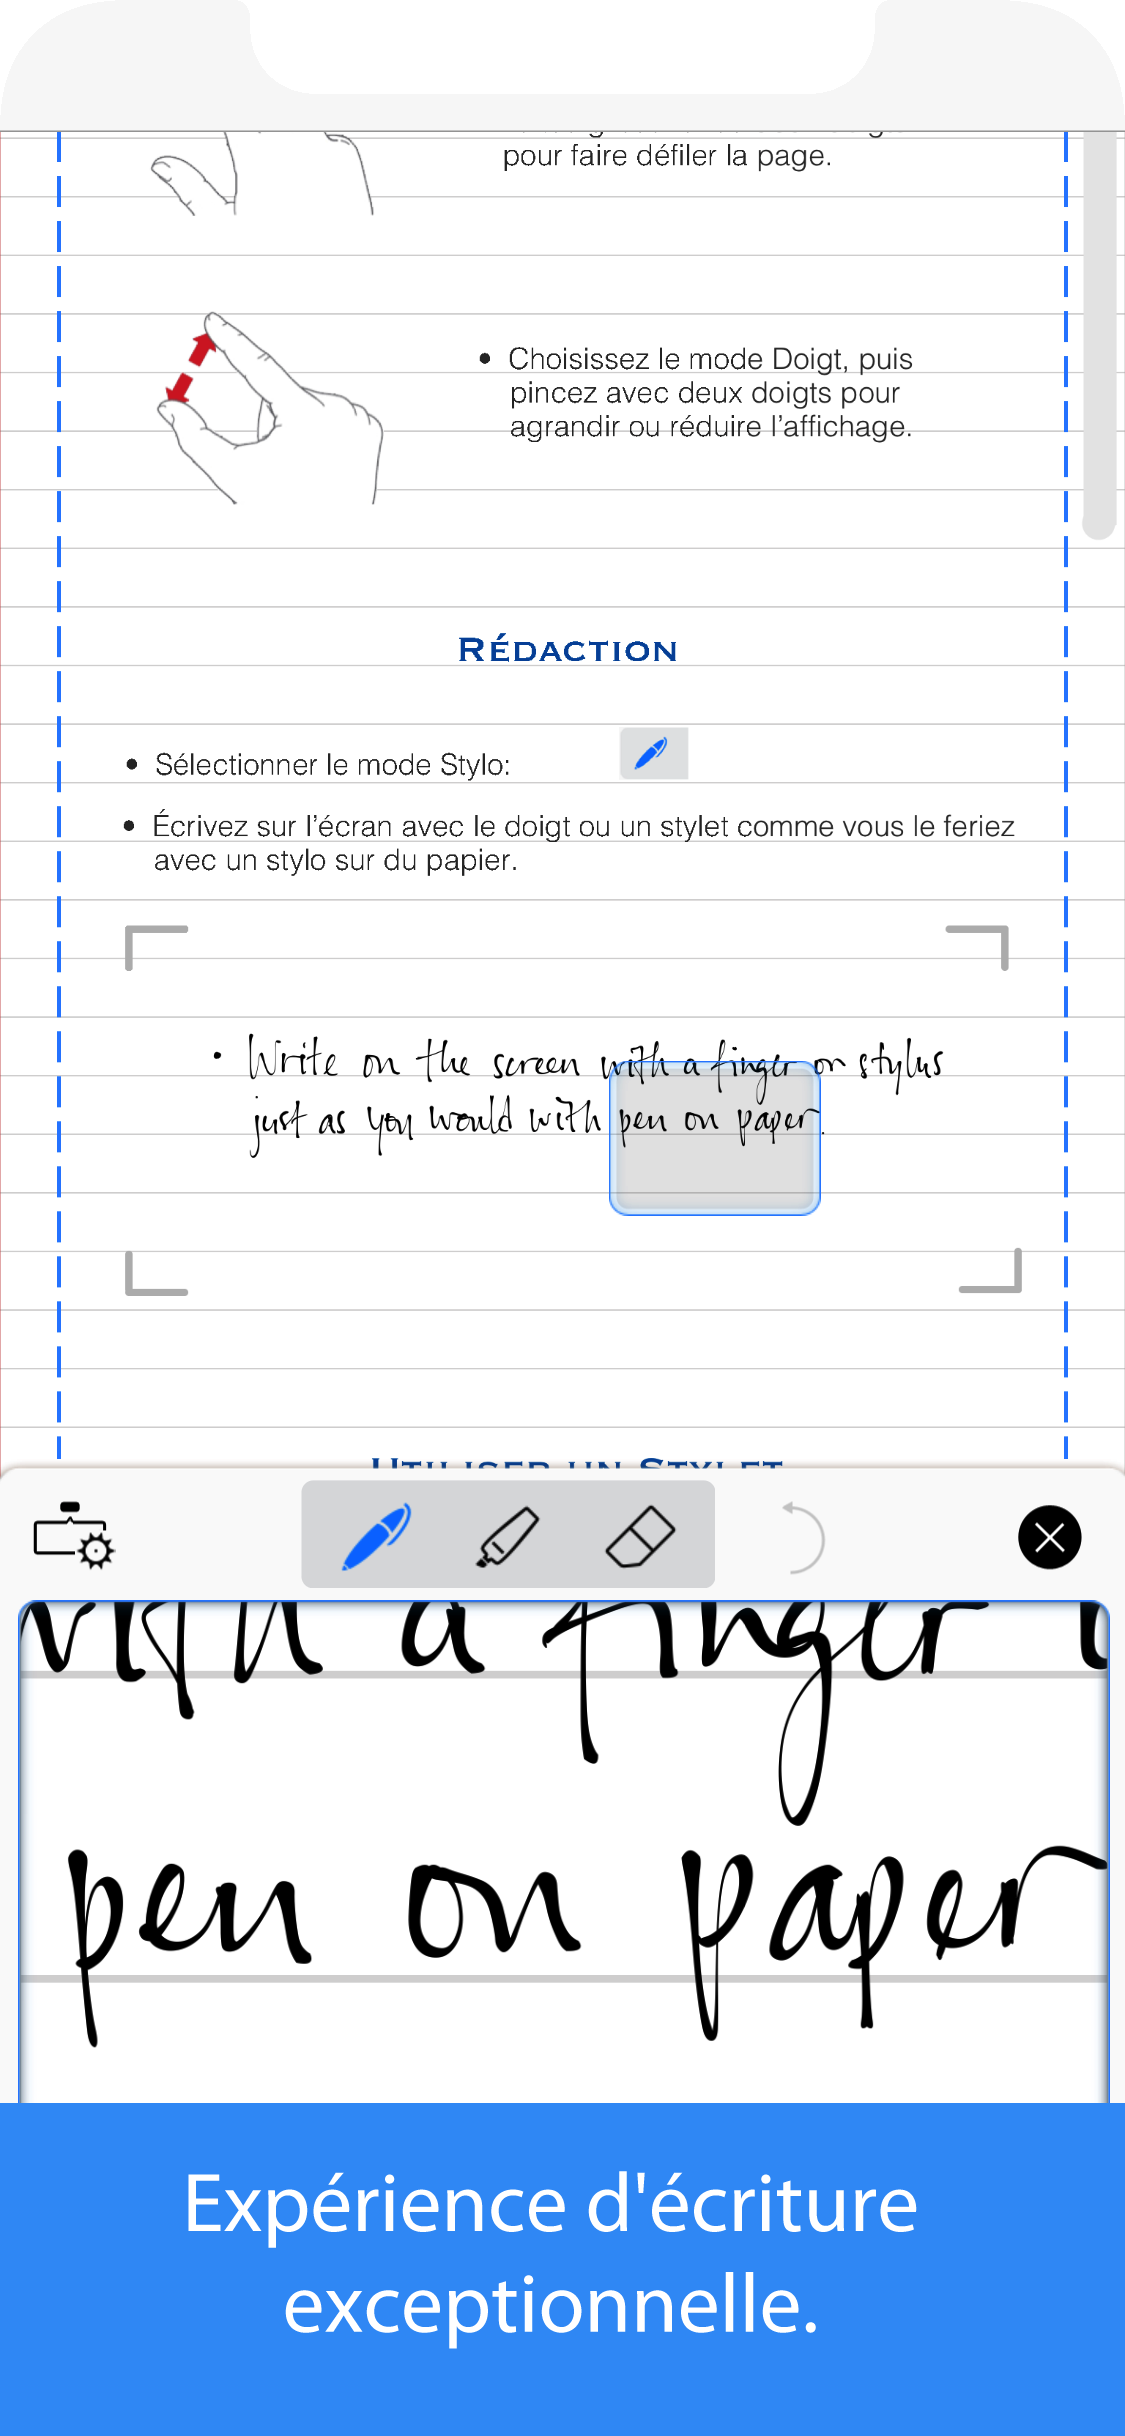 pour faire défiler la page.
• Choisissez le mode Doigt, puis
pincez avec deux doigts pour
agrandir ou réduire l'affichage.
RÉDACTION
• Sélectionner le mode Stylo:
• Écrivez sur l'écran avec le doigt ou un stylet comme vous le feriez
avec un stylo sur du papier.
• Write on the screen with a finger or stylus
just as you would with pen on paper.
UTILISER UN STYLET
with a finger
pen on paper
Expérience d'écriture
exceptionnelle.